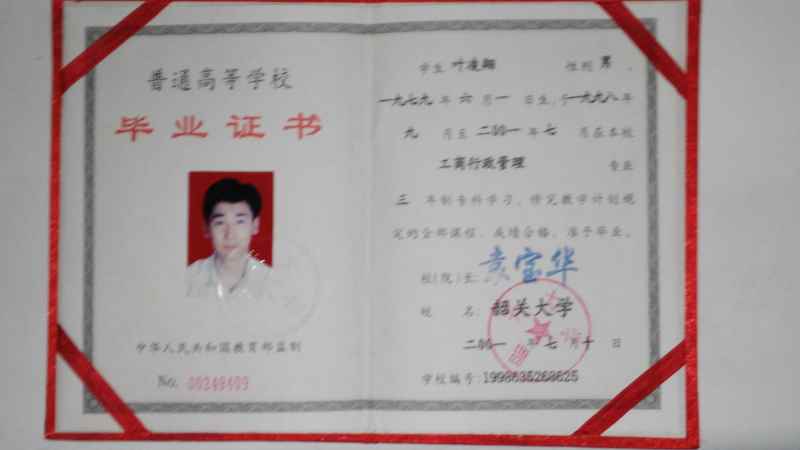 普通高等学校
毕业证书
中华人民共和国教育部监制
No. 00248409
学生 叶凌翔 性别 男 ,
一九七九 年 六 月 一 日生,于一九九八年
九 月至 二〇〇一 年 七 月在本校
工商行政管理 专业
三 年制专科学习,修完教学计划规
定的全部课程,成绩合格,准予毕业。
校(院)长: 袁宝华
校 名: 韶关大学
二〇〇一 年 七 月 十 日
学校编号: